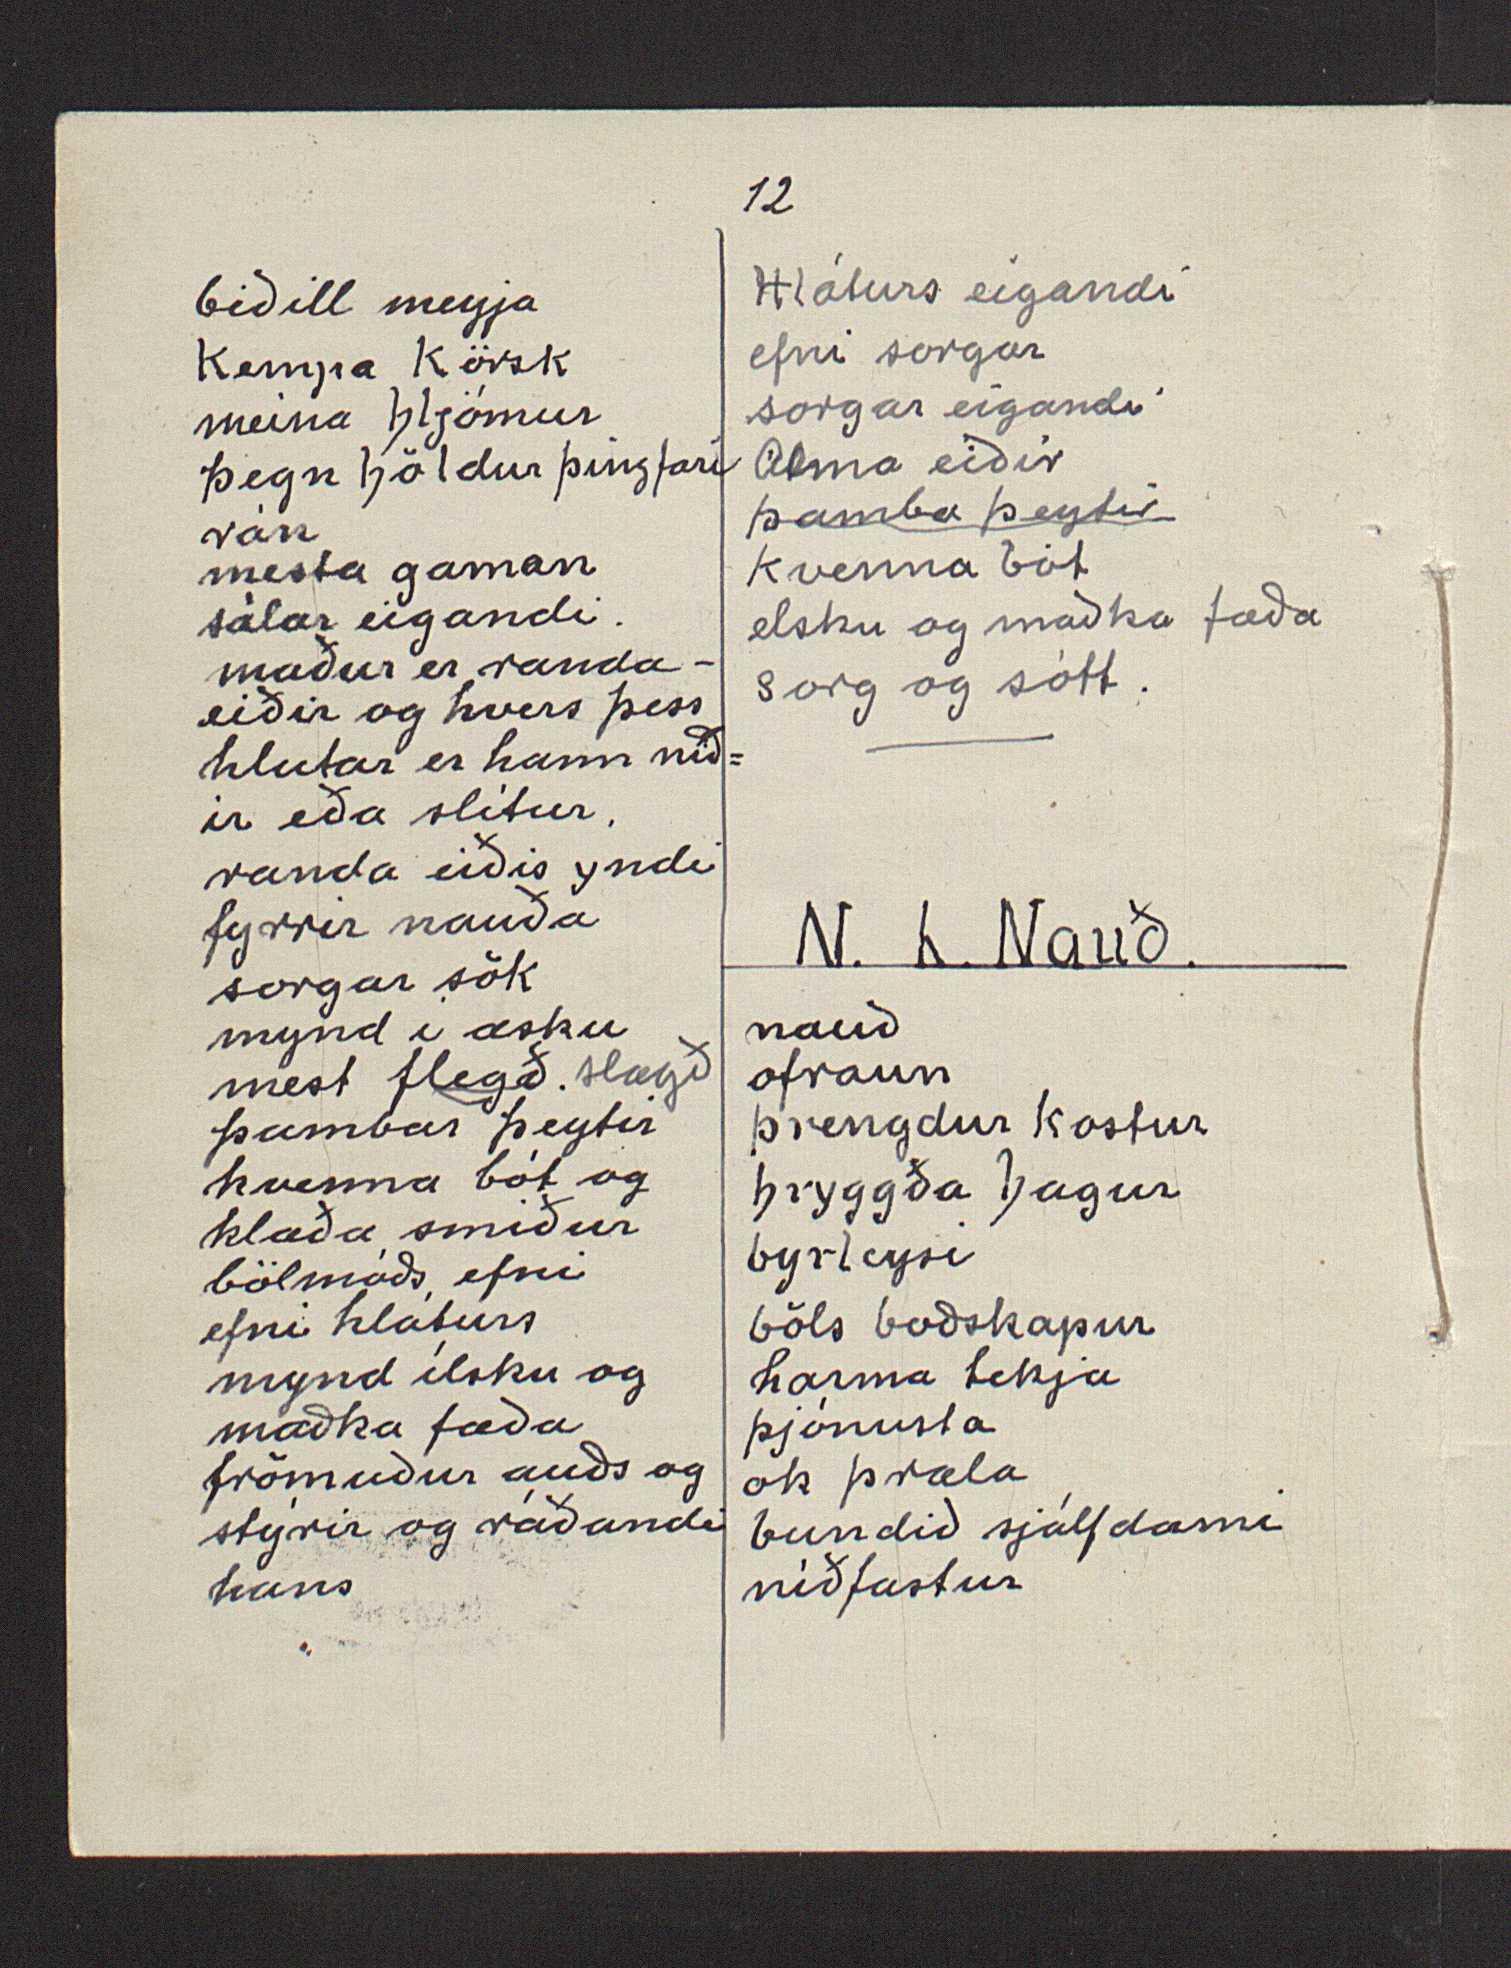 12
biðill meyja
Kempa Körsk
meina hljómur
þegn höldur þingfari
rán
mesta gaman
sálar eigandi.
maður er randa-
eiðir og hvers þess
hlutar er hann nið=
ir eða slítur.
randa eiðis yndi
fyrrir nauða
sorgar sök
mynd í æsku
mest flegð. slægð
þambar þeytir
kvenna bót og
klæða smiður
bölmóðs efni
efni hláturs
mynd ílsku og
maðka fæða
frömuður auðs og
stýrir og ráðandi
hans
Hláturs eigandi
efni sorgar
sorgar eigandi
Alma eiðir
þamba þeytir
kvenna bót
elsku og maðka fæða
sorg og sótt.
N. h. Nauð.
nauð
ofraun
þrengdur kostur
hryggða hagur
byrleysi
böls boðskapur
harma tekja
þjónusta
ok þræla
bundið sjálfdæmi
níðfastur